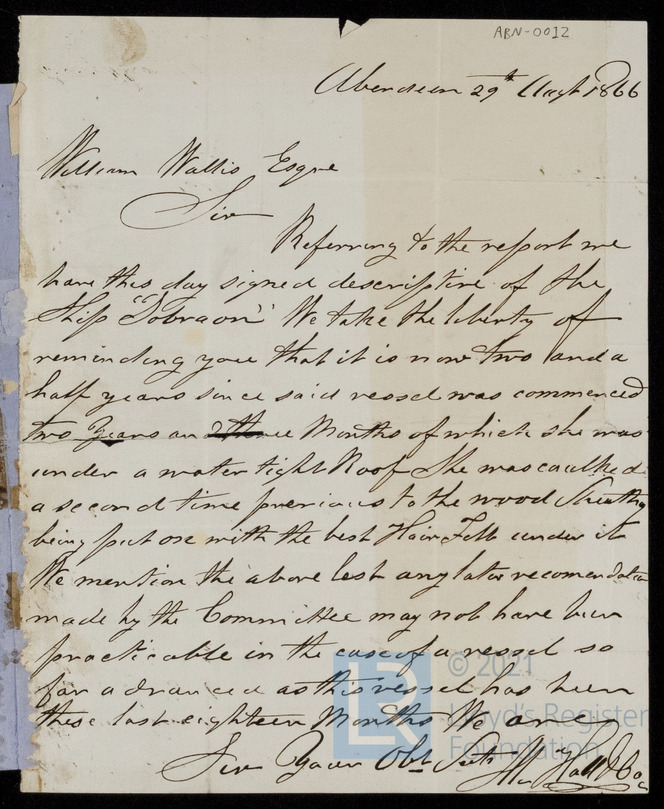 ABN-0012
Aberdeen 29th Augt 1866
William Wallis Esqre
Sir
Referring to the report we
have this day signed descriptive of the
Ship "Sobraon" We take the liberty of
reminding you that it is now two and a
half years since said vessel was commenced
two Years and three Months of which she was
under a water tight Roof She was caulked
a second time previous to the wood Sheathg
being put one with the best Hair Felt under it
We mention the above lest any later recomendation
made by the Committee may not have been
practicable in the case of a vessel so
far advanced as this vessel has been
these last eighteen Months We are
Sir Your Obt Servts
Hall & Co
© 2021
Lloyd's Register
Foundation
LR